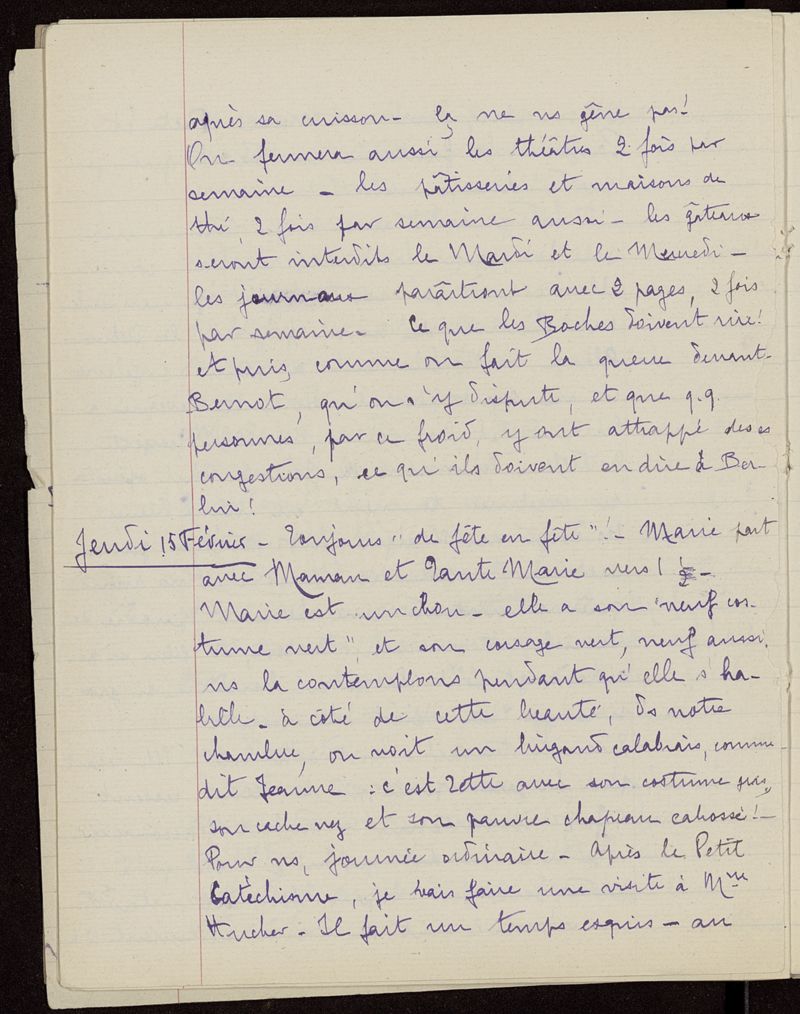 après sa cuisson – ça ne ns gêne pas!
On fermera aussi les théâtres 2 fois par
semaine – les pâtisseries et maisons de
thé, 2 fois par semaine aussi – les gâteaux
seront interdits le Mardi et le Mercredi –
les journaux paraîtront avec 2 pages, 2 fois
par semaine. Ce que les Boches doivent rire!
et puis, comme on fait la queue devant
Bernot, qu'on s'y dispute, et que q.q.
personnes, par ce froid, y ont attrappé des
congestions, ce qu'ils doivent en dire à Ber-
lin!
Jeudi 15 Février – Toujours "de fête en fête"! – Marie part
avec Maman et Tante Marie vers 1 h –
Marie est un chou – elle a son "neuf cos-
tume vert" et son corsage vert, neuf aussi.
ns la contemplons pendant qu'elle s'ha-
bille – à côté de cette beauté, ds notre
chambre, on voit un brigand calabrais, comme
dit Jeanne : c'est Zette avec son costume gris,
son cache nez et son pauvre chapeau cabossé! –
Pour ns, journée ordinaire – Après le Petit
Catéchisme, je vais faire une visite à Mme
Hucher – Il fait un temps exquis – au